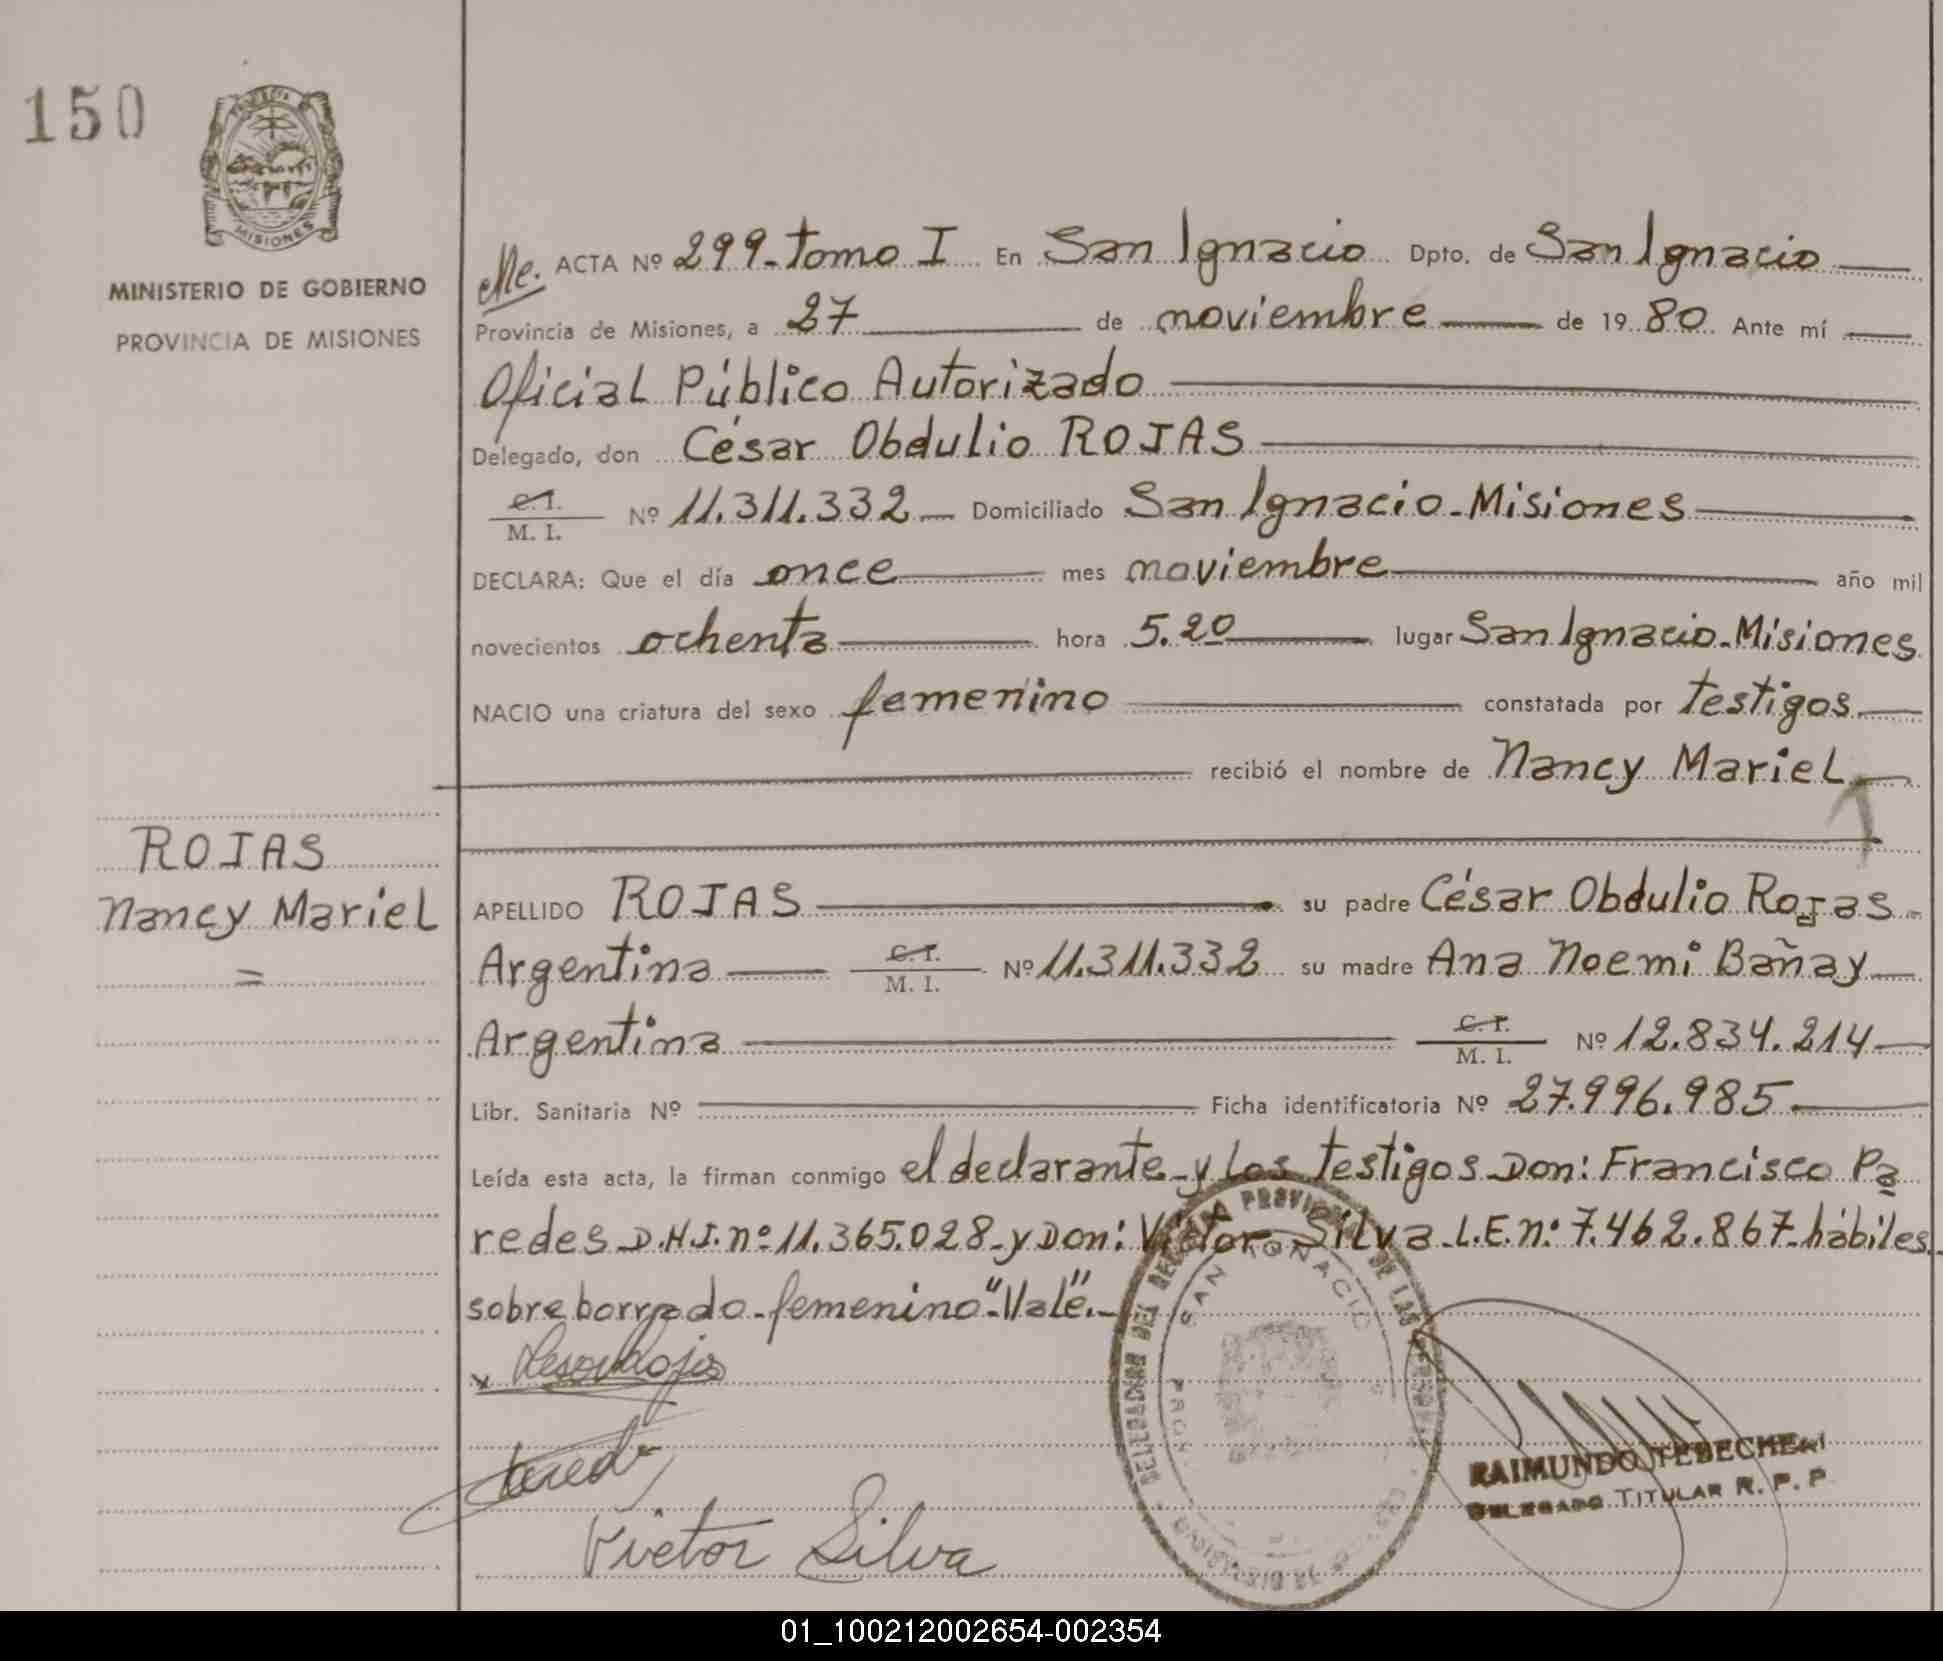 150
PROVINCIA
MISIONES
MINISTERIO DE GOBIERNO
PROVINCIA DE MISIONES
Me. ACTA Nº 299-tomo I En San Ignacio Dpto. de San Ignacio
Provincia de Misiones, a 27 de noviembre de 1980 Ante mí
Oficial Público Autorizado
Delegado, don César Obdulio ROJAS
C.I. M. I. Nº 11.311.332 Domiciliado San Ignacio-Misiones
DECLARA: Que el día once mes noviembre año mil
novecientos ochenta hora 5.20 lugar San Ignacio-Misiones
NACIO una criatura del sexo femenino constatada por testigos
recibió el nombre de Nancy Mariel
ROJAS
Nancy Mariel
=
APELLIDO ROJAS su padre César Obdulio Rojas
Argentina C.I. M. I. Nº 11.311.332 su madre Ana Noemi Bañay
Argentina C.I. M. I. Nº 12.834.214
Libr. Sanitaria Nº Ficha identificatoria Nº 27.996.985
Leída esta acta, la firman conmigo el declarante-y los testigos Don: Francisco Pa
redes D.N.I. nº 11.365.028-y Don: Víctor Silva-L.E. nº 7.462.867-hábiles
sobre borrado-femenino "Vale".-
x Cesar Rojas
Victor Silva
SAN IGNACIO
RAIMUNDO TEBECHERI
DELEGADO TITULAR R. P. P.
01_100212002654-002354